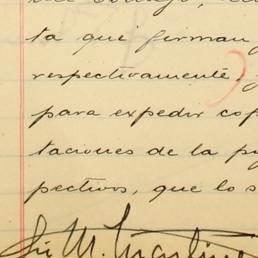 ta que firman
respectivamente,
para expedir cop
taciones de la p
pectivos, que lo s
M. Martine